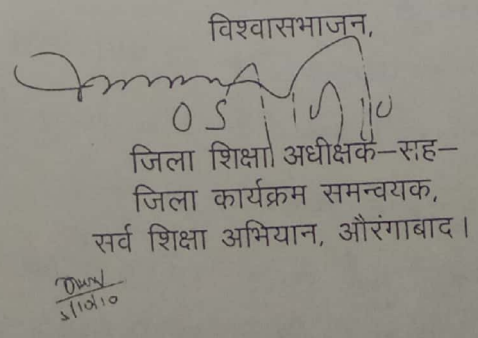 विश्वासभाजन,
जिला शिक्षा अधीक्षक–सह–
जिला कार्यक्रम समन्वयक,
सर्व शिक्षा अभियान, औरंगाबाद।